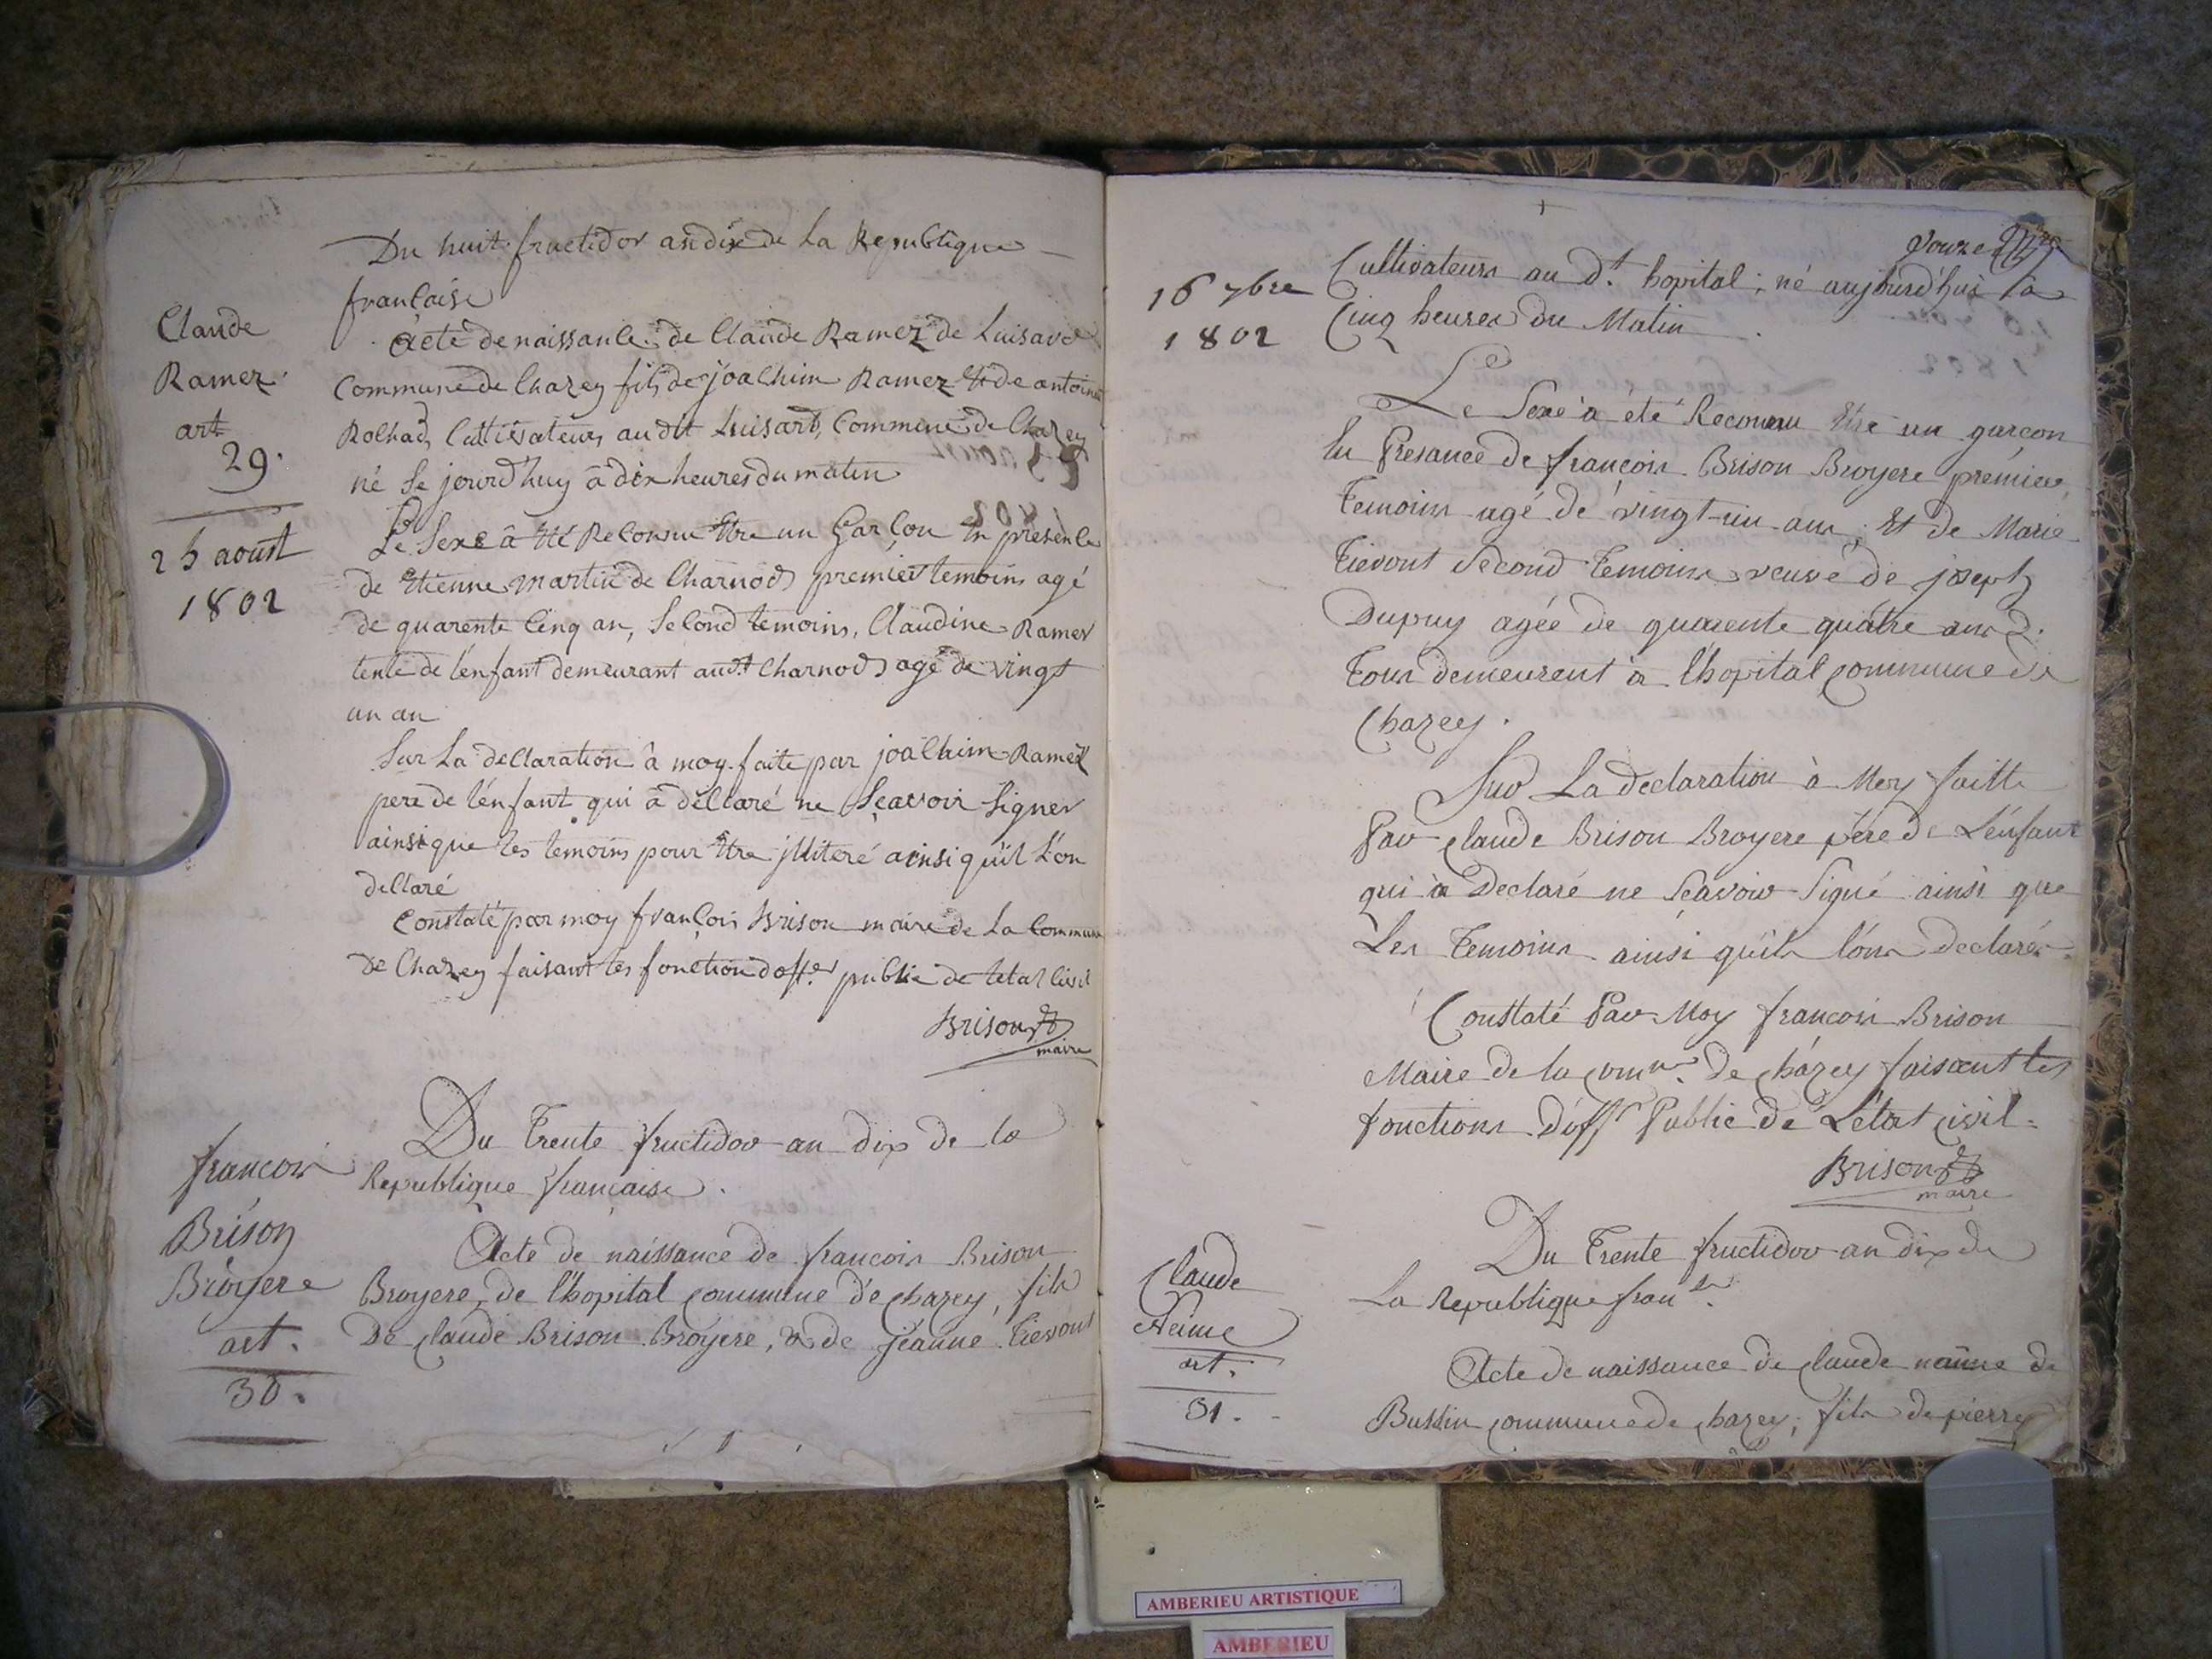 Du huit fructidor an dix de La Republique
francaise
Claude
Ramez
art
29.
25 aoust
1802
acte de naissance de Claude Ramez de Luisard
Commune de Chazey fils de joachim Ramez et de antoinette
Rolhad, Cultivateurs audit Luisard, Commune de Chazey
né se jourd'huy à dix heures du matin
Le Sexe à été Reconnu être un Garçon En presence
de Etienne martin de Charnod premier temoins agé
de quarente Cinq an, Second temoins, Claudine Ramer
tente de lenfant demeurant aud.t Charnod agé de vingt
un an
Sur La declaration à moy faite par joachim Ramez
pere de lénfant qui à déclaré ne Sçavoir Signer
ainsi que les temoins pour être jlliteré ainsi quil L'on
declaré
Constaté par moy françois Brison maire de La Commune
de Chazey faisant les fonction doff.er public de letat Civil
Brison
maire
francois
Brison
Broyere
art.
30.
Du Trente fructidor an dix de la
Republique française.
Acte de naissance de francois Brison
Broyere, de l'hopital Commune de Chazey, fils
De Claude Brison Broyere, & de jéanne Tievont
Douze
16 7bre
1802
Cultivateurs au d.t hopital; né aujourd'hui à
Cinq heures du Matin.
Le Sexe à été Reconnu être un garcon
En Presance de francois Brison Broyere prémier
Temoins agé de vingt-un ans; Et de Marie
Tievont Second Temoins veuve de joseph
Dupuy agée de quarente quatre ans
Tous demeurent à l'hopital Commune de
Chazey.
Sur La declaration à Moy faitte
Par Claude Brison Broyere père de L'énfant
qui à Declaré ne Sçavoir Signé ainsi que
Les Temoins ainsi qu'ils l'ons Declarés.
Constaté Par Moy francois Brison
Maire de la Comm.ne de Chazey faisant les
fonctions d'off.r Public de L'état Civil.
Brison
maire
Claude
Neime
art.
31.
Du Trente fructidor an dix de
La Republique fran.se
Acte de naissance de Claude naime de
Bustin Commune de Chazey; fils de pierre
AMBERIEU ARTISTIQUE
AMBERIEU